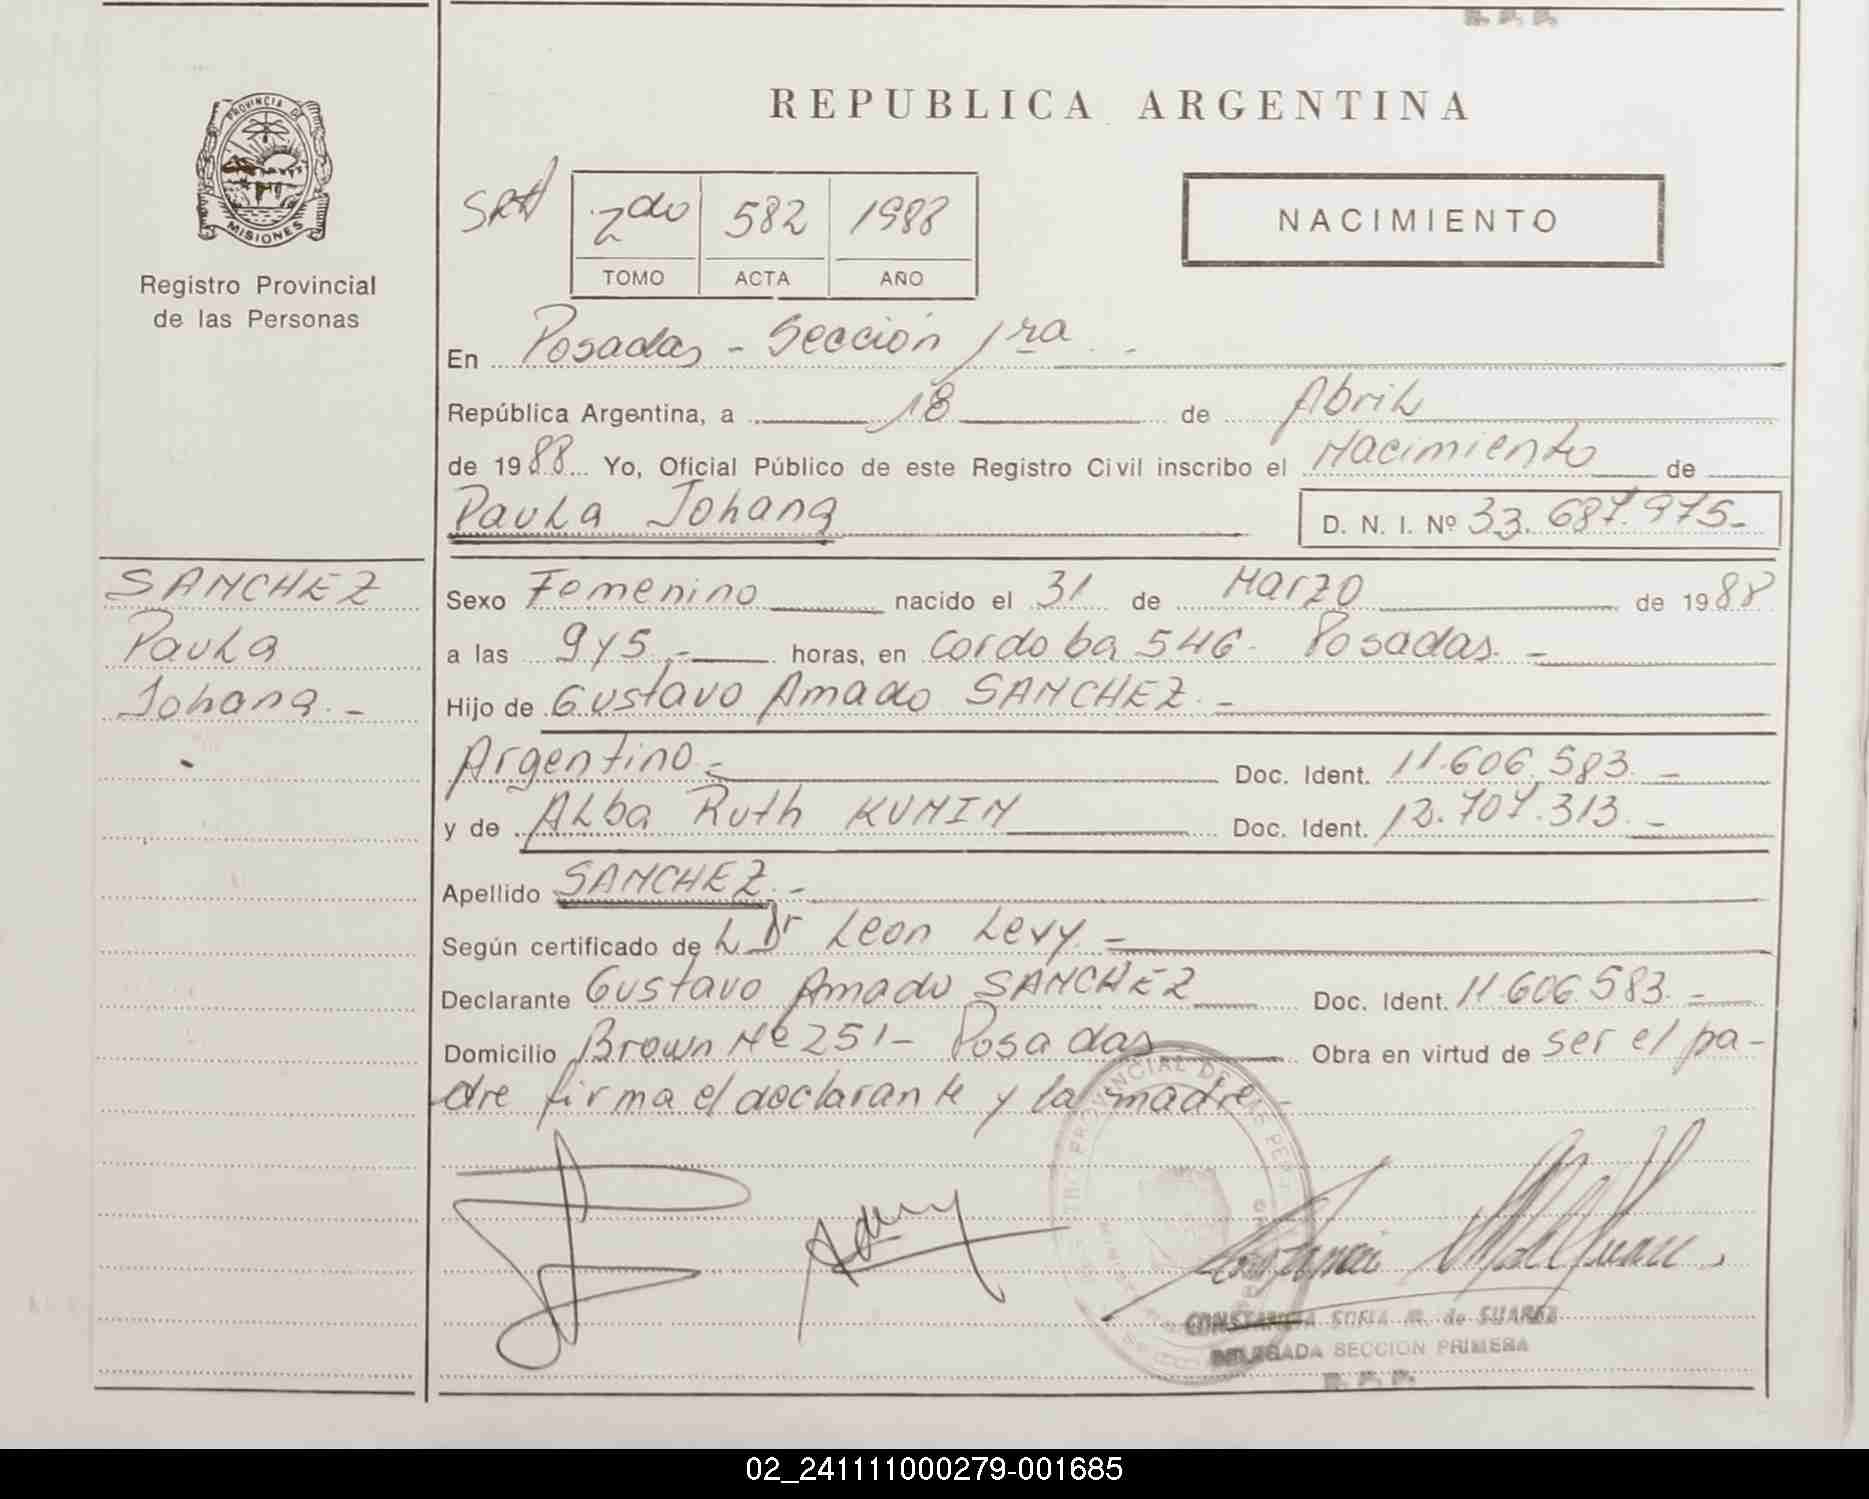 R. P. P.
PROVINCIA DE
MISIONES
Registro Provincial
de las Personas
REPUBLICA ARGENTINA
2do 582 1988
TOMO ACTA AÑO
NACIMIENTO
En Posadas - Sección 1ra -
República Argentina, a 18 de Abril
de 1988 Yo, Oficial Público de este Registro Civil inscribo el Nacimiento de
Paula Johana
D. N. I. Nº 33.687.975-
SANCHEZ
Paula
Johana.-
Sexo Femenino nacido el 31 de Marzo de 1988
a las 9 y 5.- horas, en Cordoba 546. Posadas.-
Hijo de Gustavo Amado SANCHEZ.-
Argentino.- Doc. Ident. 11.606.583.-
y de Alba Ruth KUNIN Doc. Ident. 12.707.313.-
Apellido SANCHEZ.-
Según certificado de L Dr Leon Levy.-
Declarante Gustavo Amado SANCHEZ Doc. Ident. 11.606.583.-
Domicilio Brown Nº 251- Posadas Obra en virtud de ser el pa-
dre firma el declarante y la madre.-
CONSTANCIA SOFIA M. de SUAREZ
DELEGADA SECCION PRIMERA
R. P. P.
02_241111000279-001685